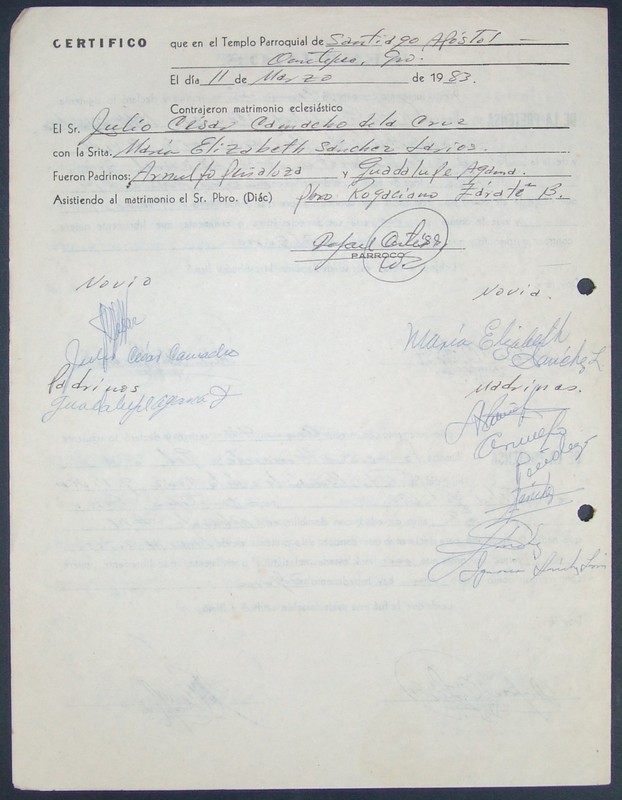 CERTIFICO que en el Templo Parroquial de Santiago Apóstol
Gro.
El día 11 de Marzo de 1983.
Contrajeron matrimonio eclesiástico
El Sr. Julio César Camacho de la Cruz
con la Srita. María Elizabeth Sánchez Larios.
Fueron Padrinos: Arnulfo Peñaloza y Guadalupe Agama.
Asistiendo al matrimonio el Sr. Pbro. (Diác) Pbro Rogaciano Zárate B.
Rafael
PARROCO
Novio
Novia.
Julio César Camacho
María Elizabeth
Sánchez L
Padrinos
Madrinas.
Guadalupe
Arnulfo
Peñaloza
Ignacio